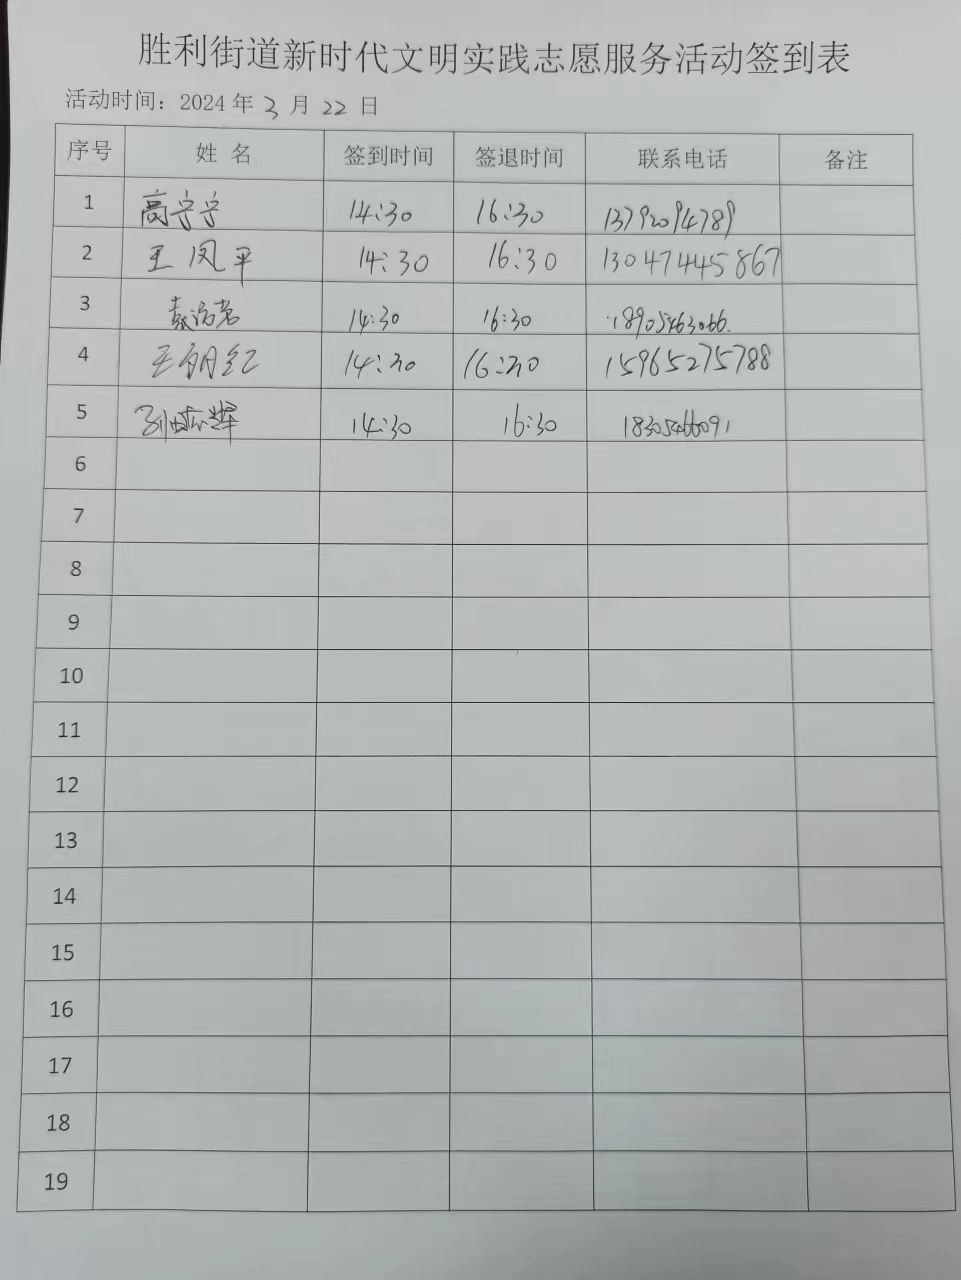 胜利街道新时代文明实践志愿服务活动签到表
活动时间：2024 年 3 月 22 日
序号 姓 名 签到时间 签退时间 联系电话 备注
1 高宁宁 14:30 16:30 13792094789
2 王凤平 14:30 16:30 13047445867
3 14:30 16:30 18905463066
4 王朝红 14:30 16:30 15965275788
5 14:30 16:30 18305466091
6
7
8
9
10
11
12
13
14
15
16
17
18
19